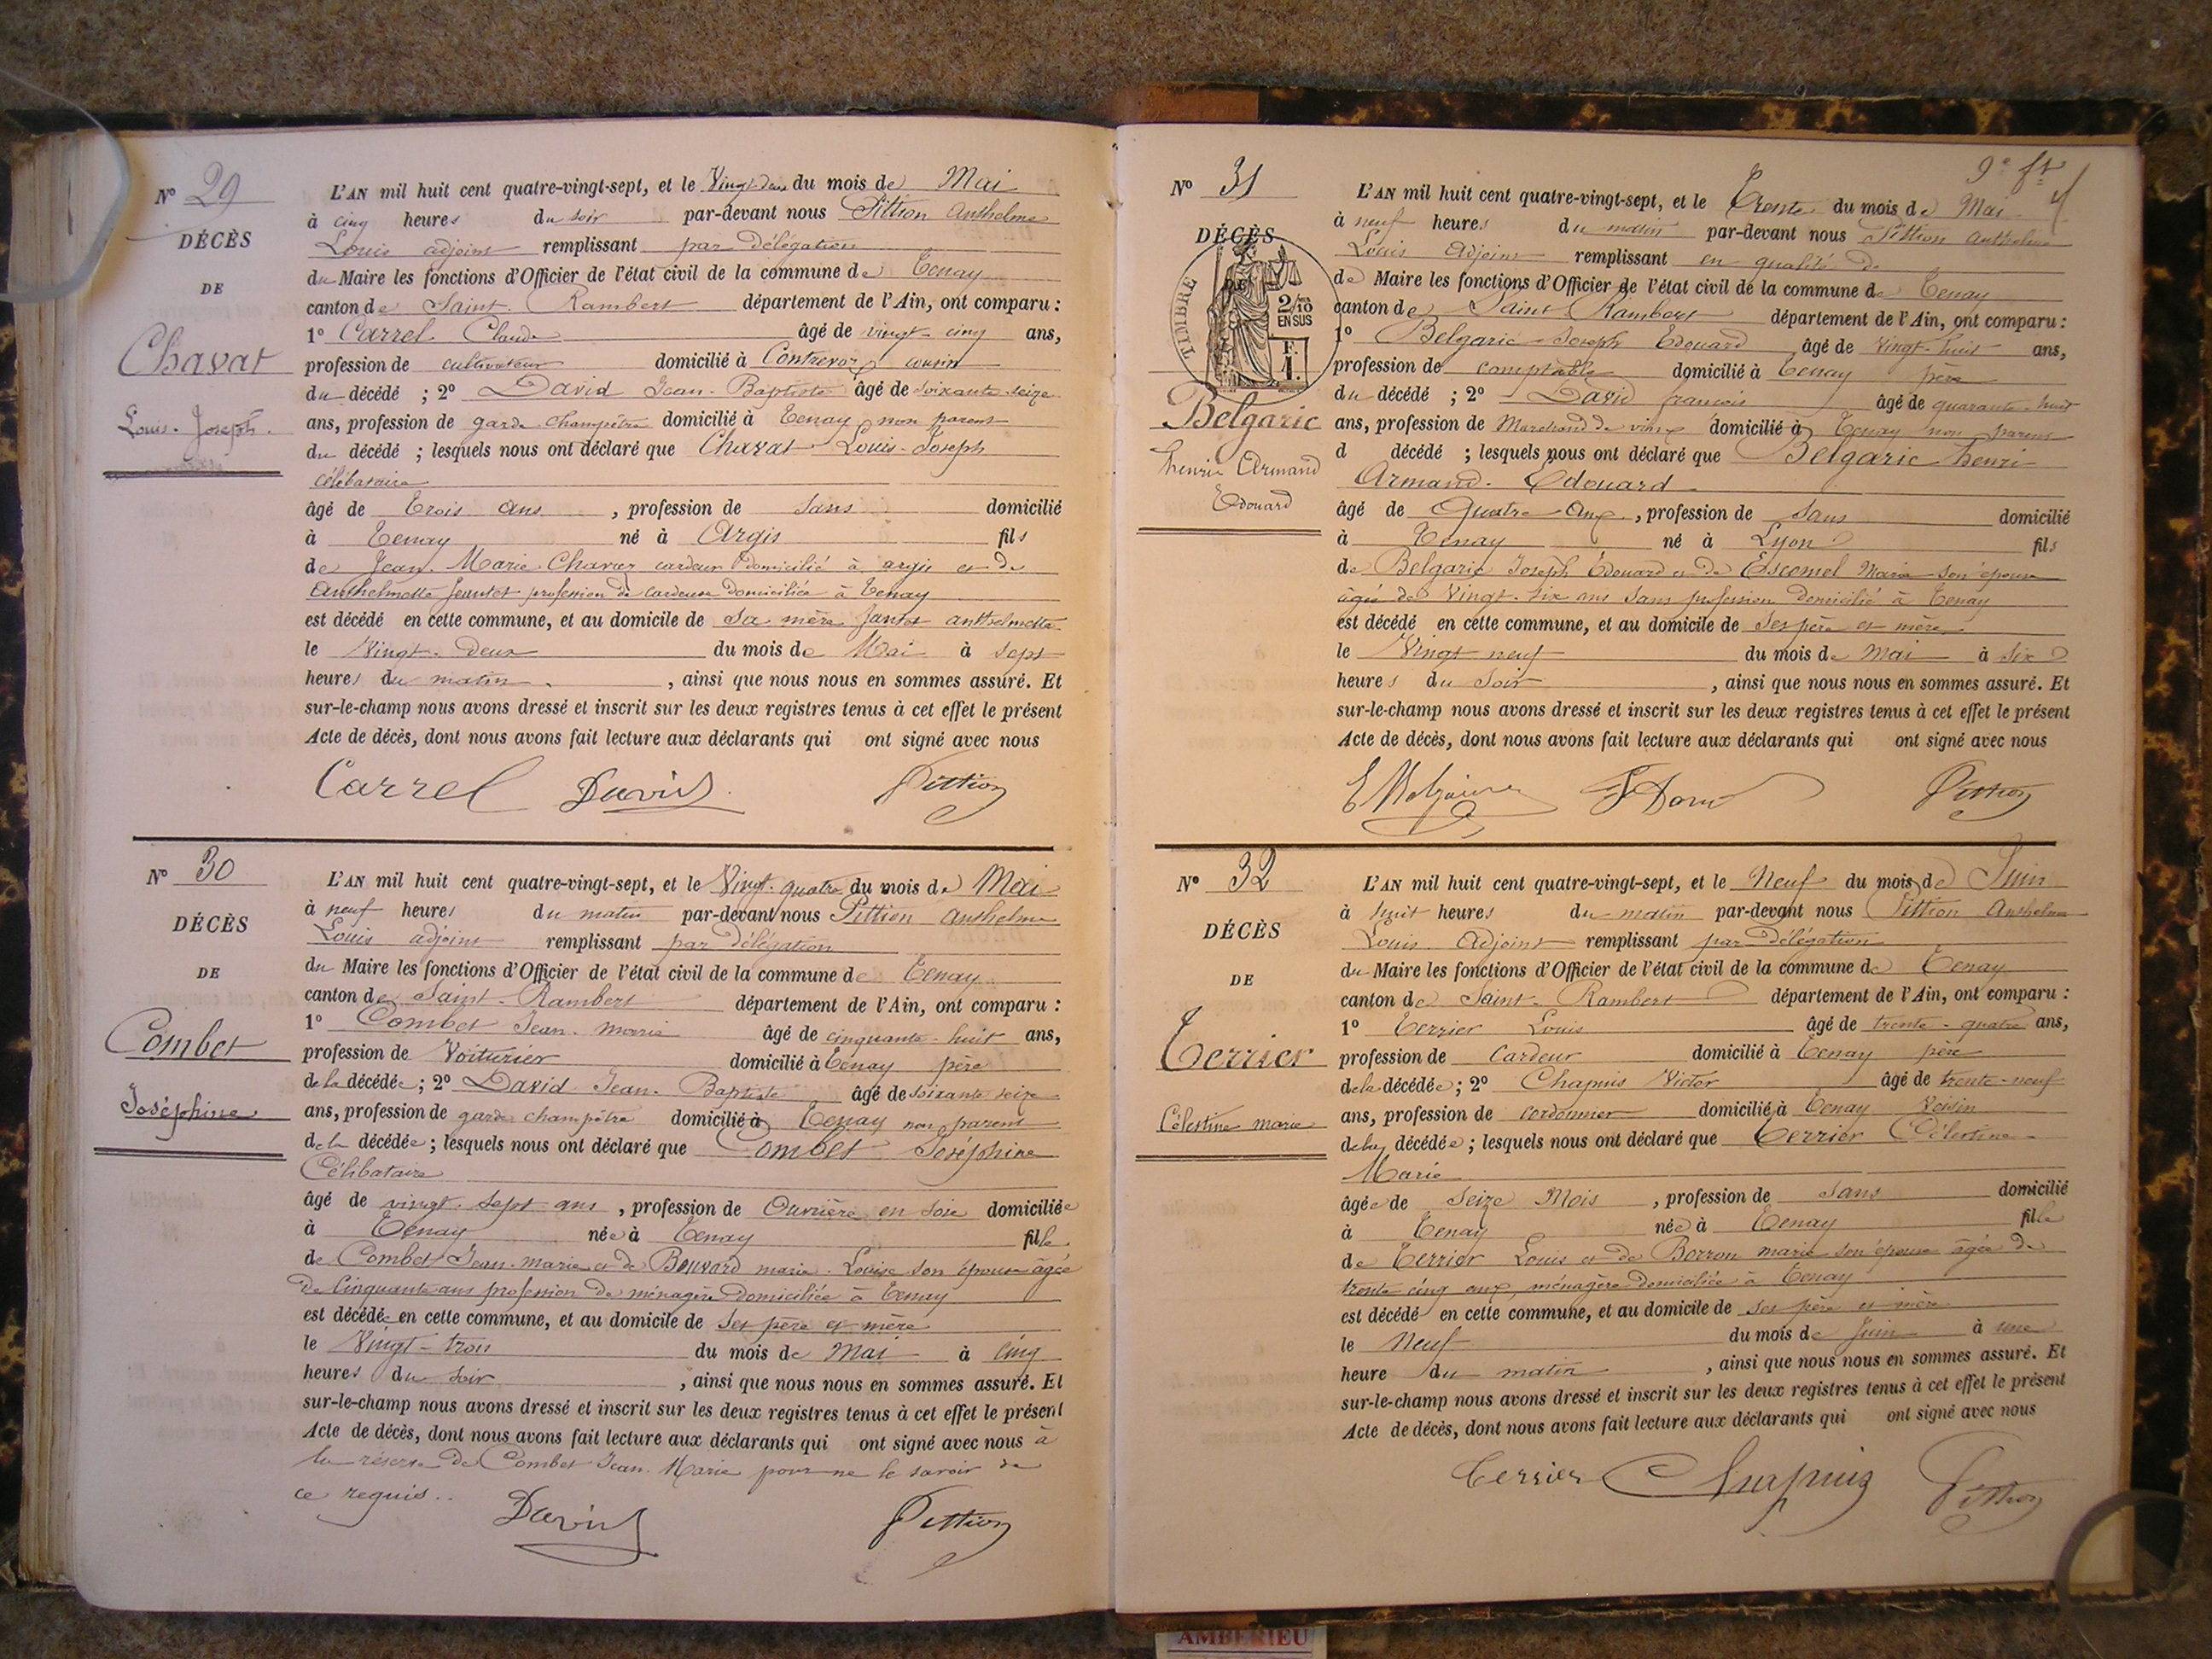 N° 29
DÉCÈS
DE
Chavat
Louis-Joseph.
L'AN mil huit cent quatre-vingt-sept, et le Vingt-deux du mois de Mai
à cinq heures du soir par-devant nous Pittion Anthelme
Louis adjoint remplissant par délégation
du Maire les fonctions d'Officier de l'état civil de la commune de Tenay
canton de Saint-Rambert département de l'Ain, ont comparu :
1° Carrel Claude âgé de vingt-cinq ans,
profession de cultivateur domicilié à Contrevoz cousin
du décédé ; 2° David Jean-Baptiste âgé de soixante-seize
ans, profession de garde champêtre domicilié à Tenay non parent
du décédé ; lesquels nous ont déclaré que Chavat Louis-Joseph
célibataire
âgé de Trois ans, profession de sans domicilié
à Tenay né à Argis fils
de Jean-Marie Chavat cardeur domicilié à argis et de
Anthelmette Jeantet profession de cardeuse domiciliée à Tenay
est décédé en cette commune, et au domicile de sa mère Jantet anthelmette
le Vingt-deux du mois de Mai à sept
heures du matin, ainsi que nous nous en sommes assuré. Et
sur-le-champ nous avons dressé et inscrit sur les deux registres tenus à cet effet le présent
Acte de décès, dont nous avons fait lecture aux déclarants qui ont signé avec nous
Carrel David Pittion
N° 30
DÉCÈS
DE
Combet
Joséphine
L'AN mil huit cent quatre-vingt-sept, et le Vingt-quatre du mois de Mai
à neuf heures du matin par-devant nous Pittion Anthelme
Louis adjoint remplissant par délégation
du Maire les fonctions d'Officier de l'état civil de la commune de Tenay
canton de Saint-Rambert département de l'Ain, ont comparu :
1° Combet Jean-marie âgé de cinquante-huit ans,
profession de Voiturier domicilié à Tenay père
de la décédée ; 2° David Jean-Baptiste âgé de soixante seize
ans, profession de garde champêtre domicilié à Tenay non parent
de la décédée ; lesquels nous ont déclaré que Combet Joséphine
Célibataire
âgé de vingt-sept ans, profession de Ouvrière en soie domiciliée
à Tenay née à Tenay fille
de Combet Jean-marie et de Bouvard marie-Louise son épouse âgée
de Cinquante ans profession de ménagère domiciliée à Tenay
est décédée en cette commune, et au domicile de ses père et mère
le Vingt-trois du mois de Mai à cinq
heures du soir, ainsi que nous nous en sommes assuré. Et
sur-le-champ nous avons dressé et inscrit sur les deux registres tenus à cet effet le présent
Acte de décès, dont nous avons fait lecture aux déclarants qui ont signé avec nous à
la réserve de Combet Jean-Marie pour ne le savoir de
ce requis..
David Pittion
9e ft
N° 31
DÉCÈS
DE
TIMBRE
2/10
EN SUS
F.
1.
Belgaric
henri Armand
Edouard
L'AN mil huit cent quatre-vingt-sept, et le Trente du mois de Mai
à neuf heures du matin par-devant nous Pittion Anthelme
Louis Adjoint remplissant en qualité de
de Maire les fonctions d'Officier de l'état civil de la commune de Tenay
canton de Saint-Rambert département de l'Ain, ont comparu :
1° Belgaric Joseph Edouard âgé de vingt-huit ans,
profession de comptable domicilié à Tenay père
du décédé ; 2° David françois âgé de quarante-huit
ans, profession de Marchand de vins domicilié à Tenay non parent
d décédé ; lesquels nous ont déclaré que Belgaric henri
Armand-Edouard
âgé de Quatre ans, profession de Sans domicilié
à Tenay né à Lyon fils
de Belgaric Joseph Édouard et de Escomel Marie son épouse
âgée de Vingt-six ans sans profession domicilié à Tenay
est décédé en cette commune, et au domicile de ses père et mère
le Vingt neuf du mois de mai à six
heures du Soir, ainsi que nous nous en sommes assuré. Et
sur-le-champ nous avons dressé et inscrit sur les deux registres tenus à cet effet le présent
Acte de décès, dont nous avons fait lecture aux déclarants qui ont signé avec nous
Pittion
N° 32
DÉCÈS
DE
Terrier
Célestine marie
L'AN mil huit cent quatre-vingt-sept, et le Neuf du mois de Juin
à huit heures du matin par-devant nous Pittion Anthelme
Louis Adjoint remplissant par délégation
du Maire les fonctions d'Officier de l'état civil de la commune de Tenay
canton de Saint-Rambert département de l'Ain, ont comparu :
1° Terrier Louis âgé de trente-quatre ans,
profession de Cardeur domicilié à Tenay père
de la décédée ; 2° Chapuis Victor âgé de trente-neuf
ans, profession de cordonnier domicilié à Tenay Voisin
de la décédée ; lesquels nous ont déclaré que Terrier Célestine-
Marie
âgée de Seize Mois, profession de Sans domicilié
à Tenay née à Tenay fille
de Terrier Louis et de Borron marie son épouse âgée de
trente cinq ans, ménagère domiciliée à Tenay
est décédé en cette commune, et au domicile de ses père et mère
le Neuf du mois de Juin à une
heure du matin, ainsi que nous nous en sommes assuré. Et
sur-le-champ nous avons dressé et inscrit sur les deux registres tenus à cet effet le présent
Acte de décès, dont nous avons fait lecture aux déclarants qui ont signé avec nous
Terrier Chapuis Pittion
AMBERIEU